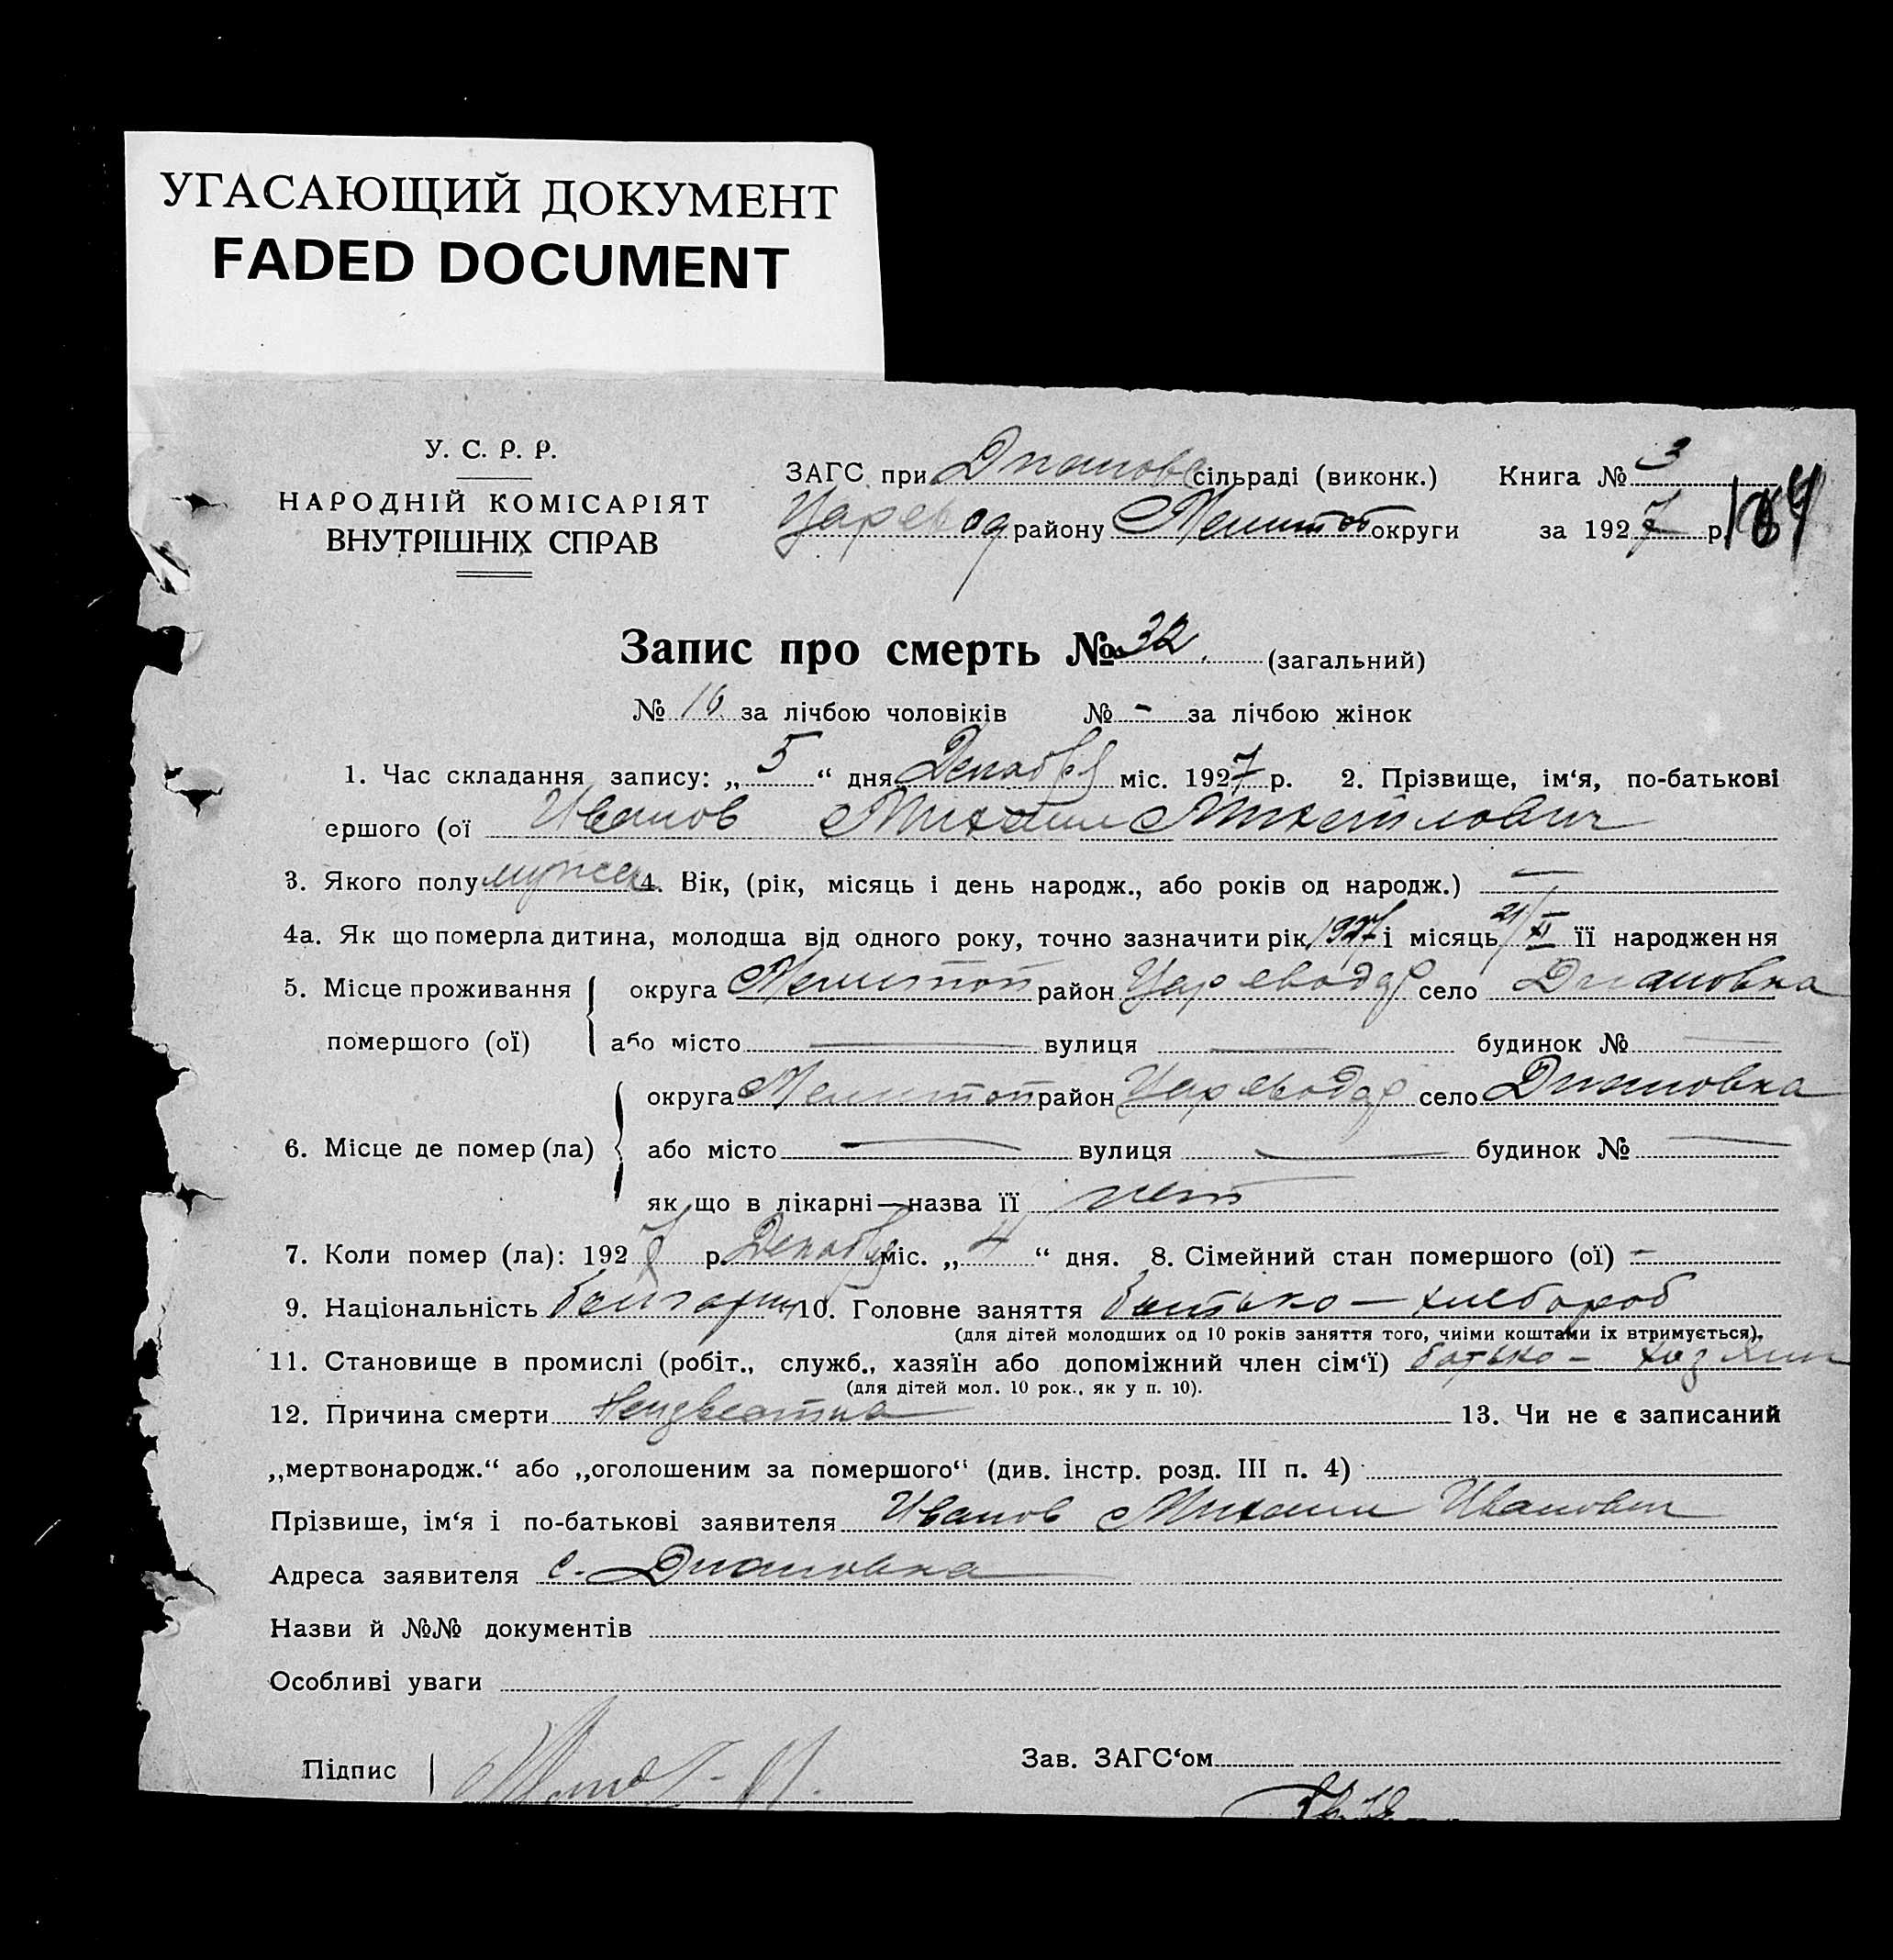 УГАСАЮЩИЙ ДОКУМЕНТ
FADED DOCUMENT
У. С. Р. Р.
НАРОДНІЙ КОМІСАРІЯТ
ВНУТРІШНІХ СПРАВ
ЗАГС при Диановс сільраді (виконк.) Книга № 3
Царевод району Мелитоп округи за 1927 р.
Запис про смерть № 32. (загальний)
№ 16 за лічбою чоловіків № - за лічбою жінок
1. Час складання запису: „ 5 “ дня Декабря міс. 1927 р. 2. Прізвище, ім‘я, по-батькові
ершого (ої Иванов Михаил Михайлович
3. Якого полу мужск 4. Вік, (рік, місяць і день народж., або років од народж.) —
4а. Як що померла дитина, молодша від одного року, точно зазначити рік 1927 і місяць 21/XI її народження
5. Місце проживання округа Мелитоп район Цареводар село Диановка
померш ого (ої) або місто — вулиця — будинок № —
округа Мелитоп район Цареводар село Диановка
6. Місце де помер (ла) або місто — вулиця — будинок № —
як що в лікарні—назва її нет
7. Коли помер (ла): 1927 р. Декабря міс. „ 4 “ дня. 8. Сімейний стан помершого (ої) -
9. Національність болгарин 10. Головне заняття батько — хлебороб
(для дітей молодших од 10 років заняття того, чиїми коштами їх втримується).
11. Становище в промислі (робіт., служб., хазяїн або допоміжний член сім‘ї) батько - хозяин
(для дітей мол. 10 рок., як у п. 10).
12. Причина смерти Неизвестна 13. Чи не є записаний
„мертвонародж.“ або „оголошеним за помершого“ (див. інстр. розд. III п. 4)
Прізвише, ім‘я і по-батькові заявителя Иванов Михаил Иванович
Адреса заявителя с. Диановка
Назви й №№ документів
Особливі уваги
Підпис
Зав. ЗАГС‘ом